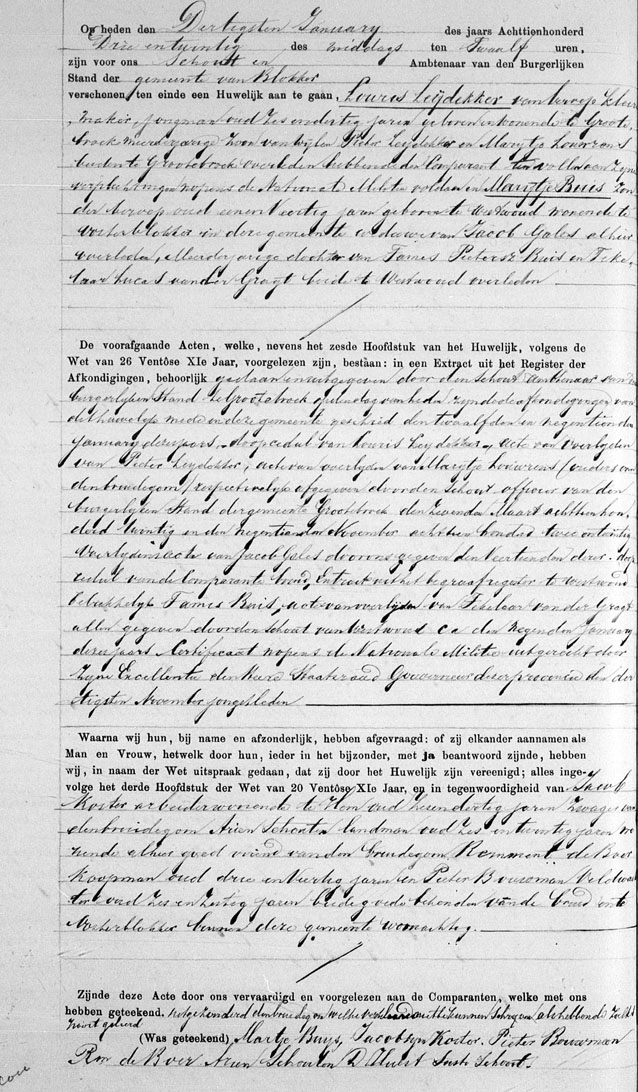 Op heden den Dertigsten January des jaars Achttienhonderd
Drie en twintig des middags ten Twaalf uren,
zijn voor ons Schout en Ambtenaar van den Burgerlijken
Stand der gemeente van Blokker
verschenen, ten einde een Huwelijk aan te gaan, Louris Leijdekker van beroep kleer
maker, jongman oud zes en dertig jaren geboren en wonende te Groote-
broek meerderjarige zoon van wijlen Pieter Leijdekker en Marijtje Louwrens
beiden te Grootebroek overleden hebbende den Comparant voldaan zyne
verplichtingen nopens de Nationale Militie voldaan en Marijtje Buis zon
der beroep oud eenen veertig jaren geboren te Westwoud wonende te
Westerblokker in deze gemeente weduwe van Jacob Gales alhier
overleden, Meerderjarige dochter van Fames Pieterse Buis en Feke
laar Lucas van der Gragt beide te Westwoud overleden
De voorafgaande Acten, welke, nevens het zesde Hoofdstuk van het Huwelijk, volgens de
Wet van 26 Ventôse XIe Jaar, voorgelezen zijn, bestaan: in een Extract uit het Register der
Afkondigingen, behoorlijk gedaan en uitgegeven door den Schout Ambtenaar van den
burgerlyken Stand te Grootebroek op den dag van heden zynde de afkondigingen van
dit huwelyk mede in deze gemeente geschied den twaalfden en negentienden
January dezes jaars, doopcedul van Louris Leydekker, acte van overlyden
van Pieter Leydekker, acte van overlyden van Marytje Louwrens (ouders van
den bruidegom) respectivelyk afgegeven door den Schout officier van den
burgerlyken Stand der gemeente Grootebroek den zevenden Maart achttien hon
derd twintig en den negentienden November achttien honderd twee en twintig
Overlydens acte van Jacob Gales door ons gegeven den Veertienden dezer. Doop
cedul van de Comparante bruid, Extract uit het begraafregister te Westwoud
betrekkelyk Fames Buis, acte van overlyden van Fekelaar van der Gragt
allen gegeven door den Schout van Westwoud ca den Negenden January
dezes jaars Certificaat nopens de Nationale Militie uitgereikt door
Zyne Excellentie den Heere Staatsraad Gouverneur dezer provincie den der
tigsten November jongstleden
Waarna wij hun, bij name en afzonderlijk, hebben afgevraagd: of zij elkander aannamen als
Man en Vrouw, hetwelk door hun, ieder in het bijzonder, met ja beantwoord zijnde, hebben
wij, in naam der Wet uitspraak gedaan, dat zij door het Huwelijk zijn vereenigd; alles inge-
volge het derde Hoofdstuk der Wet van 20 Ventôse XIe Jaar, en in tegenwoordigheid van Jacob
Koster arbeider wonende te Hem oud zes en dertig jaren Zwager van
den bruidegom Arien Schouten landman oud zes en twintig jaren wo
nende alhier goed vriend van den bruidegom Remment de Boer
Koopman oud drie en veertig jaren en Pieter Bouwman Veldwach
ter oud zes en zestig jaren beide goede bekenden van de bruid en te
Westerblokker binnen deze gemeente woonachtig.
Zijnde deze Acte door ons vervaardigd en voorgelezen aan de Comparanten, welke met ons
hebben geteekend, uitgezonderd den bruidegom welke verklaarde niet te kunnen Schryven als hebbende zulks
nooit geleerd
(Was geteekend) Martje Buys, Jacobsyn Koster. Pieter Bouwman
Rem de Boer Arien Schouten Schout.